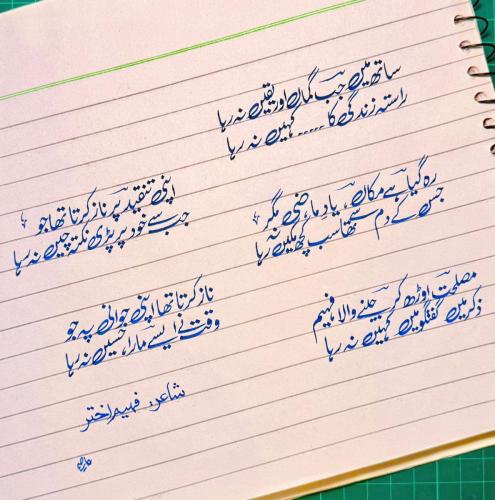 ساتھ میں جب گماں اور یقیں نہ رہا
راستہ زندگی کا ..... کہیں نہ رہا
رہ گیا ہے مکاں، یادِ ماضی مگر
جس کے دم سے تھا سب کچھ مکیں نہ رہا
اپنی تنقید پر ناز کرتا تھا جو
جب سے خود پر پڑی نکتہ چیں نہ رہا
مصلحت اوڑھ کر چلنے والا فہیم
ذکر میں گفتگو میں کہیں نہ رہا
ناز کرتا تھا اپنی جوانی پہ جو
وقت نے ایسے مارا، حسیں نہ رہا
شاعر: فہیم اختر